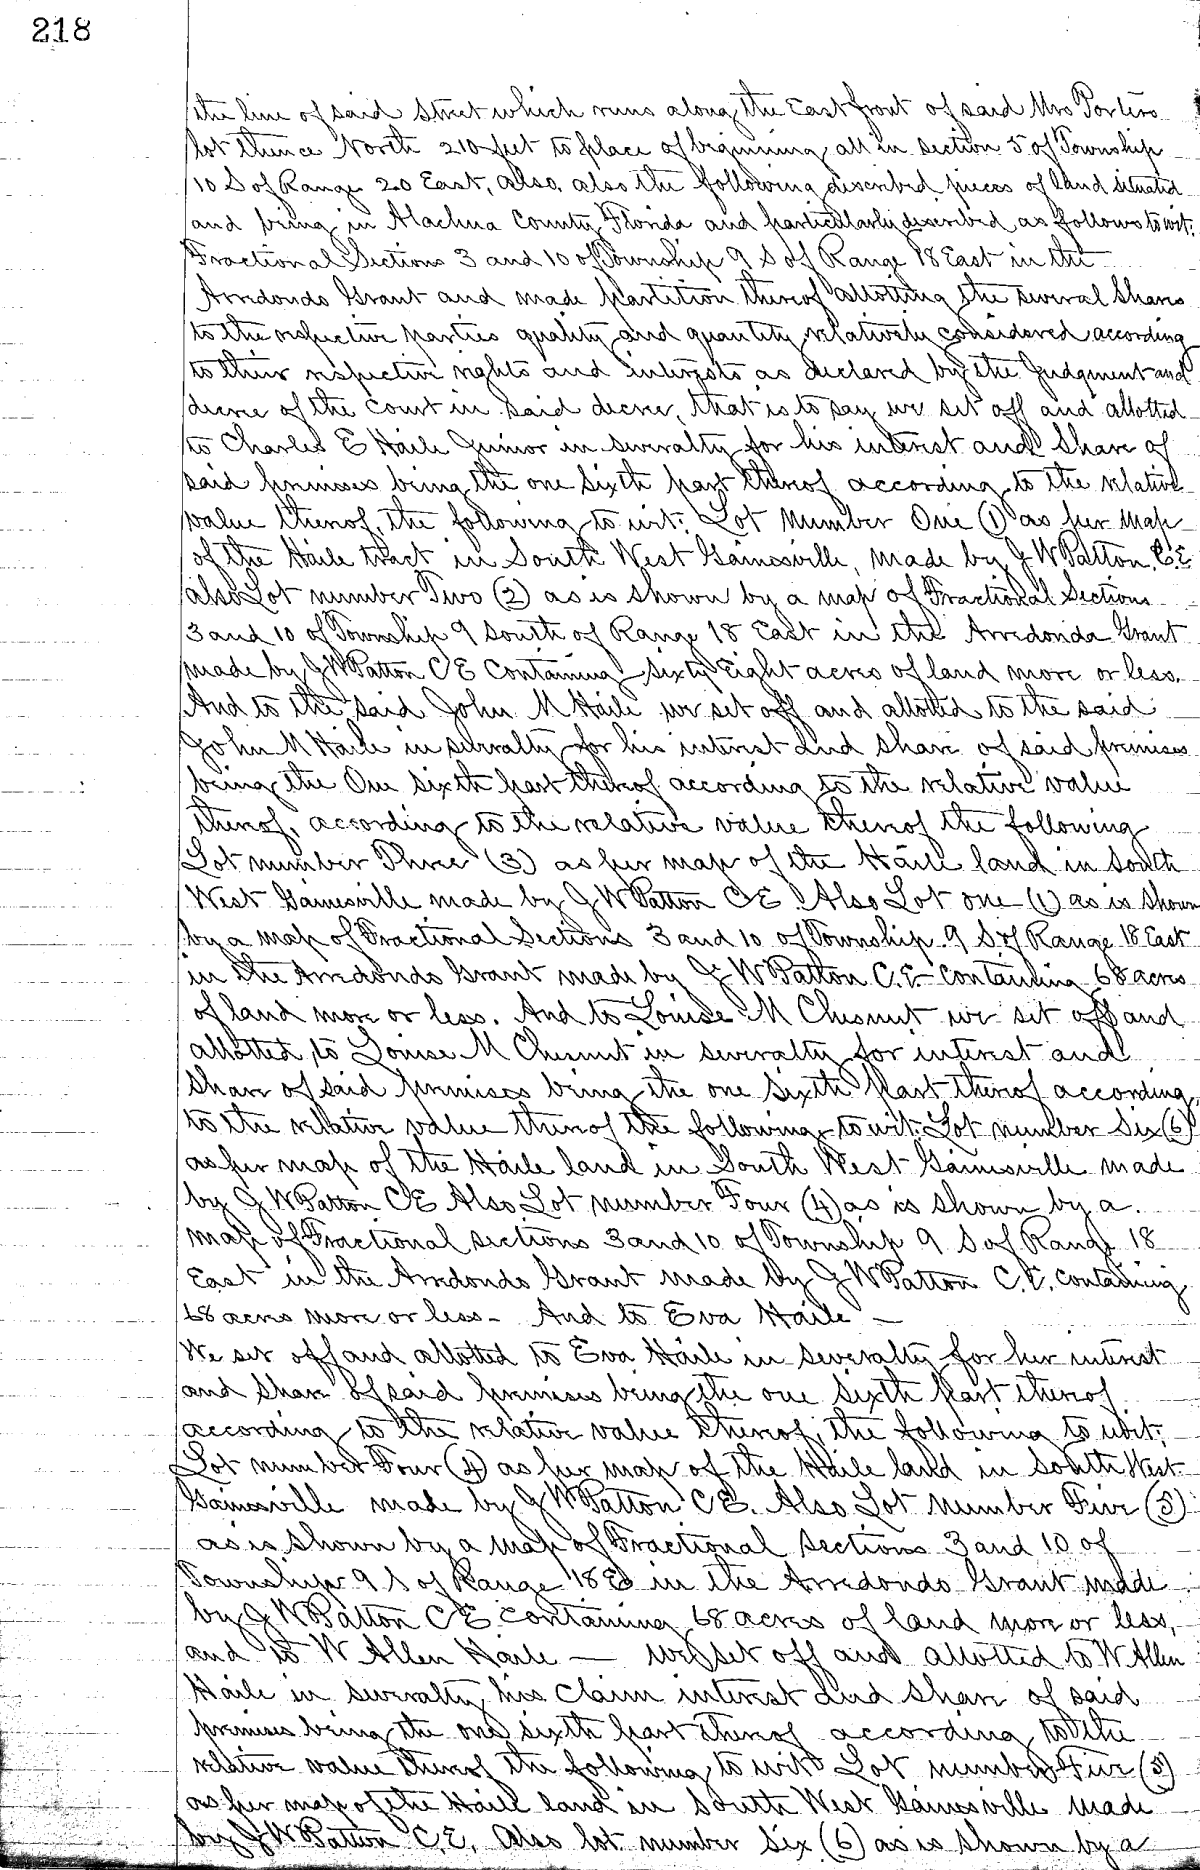 218
the line of said Street which runs along the East front of said Mrs Porters
lot thence North 210 feet to place of beginning all in section 5 of Township
10 S of Range 20 East, also, also the following described pieces of land situated
and being in Alachua County Florida and particularly described as follows to wit:
Fractional Sections 3 and 10 of Township 9 S of Range 18 East in the
Arredondo Grant and made partition thereof allotting the several shares
to the respective parties quality and quantity relatively considered according
to their respective rights and interests as declared by the Judgment and
decree of the Court in said decree, that is to say we set off and allotted
to Charles E Haile Junior in severalty for his interest and Share of
said premises being the one sixth part thereof according to the relative
value thereof, the following to wit: Lot Number One (1) as per Map
of the Haile tract in South West Gainesville, made by J W Patton, C.E
also Lot number Two (2) as is shown by a map of Fractional Sections
3 and 10 of Township 9 South of Range 18 East in the Arredonda Grant
made by J W Patton C E Containing sixty Eight acres of land more or less.
And to the said John M Haile we set off and allotted to the said
John M Haile in severalty for his interest and share of said premises
being the One sixth part thereof according to the relative value
thereof, according to the relative value thereof the following
Lot number Three (3) as per map of the Haile land in South
West Gainesville made by J W Patton C E. Also Lot one (1) as is shown
by a map of Fractional Sections 3 and 10 of Township 9 S of Range 18 East
in the Arredondo Grant made by J W Patton C.E. containing 68 acres
of land more or less. And to Louise M Chesnut we set off and
allotted to Louise M Chesnut in severalty for interest and
share of said premises being the one sixth part thereof according
to the relative value thereof the following to wit: Lot number Six (6)
as per map of the Haile land in South West Gainesville made
by J W Patton C E Also Lot number Four (4) as is shown by a
map of Fractional sections 3 and 10 of Township 9 S of Range 18
East in the Arredondo Grant made by J W Patton C.E. containing
68 acres more or less - And to Eva Haile —
We set off and allotted to Eva Haile in severalty for her interest
and share of said premises being the one sixth part thereof
according to the relative value thereof, the following to wit:
Lot number Four (4) as per map of the Haile land in South West
Gainesville made by J W Patton C E. Also Lot Number Five (5)
as is shown by a map of Fractional sections 3 and 10 of
Township 9 S of Range 18 E in the Arredondo Grant made
by J W Patton C E containing 68 acres of land more or less,
and to W Allen Haile — we set off and allotted to W Allen
Haile in severalty his claim interest and share of said
premises being the one sixth part thereof according to the
relative value thereof the following to wit Lot number Five (5)
as per map of the Haile land in South West Gainesville made
by J W Patton C.E. Also lot number six (6) as is shown by a